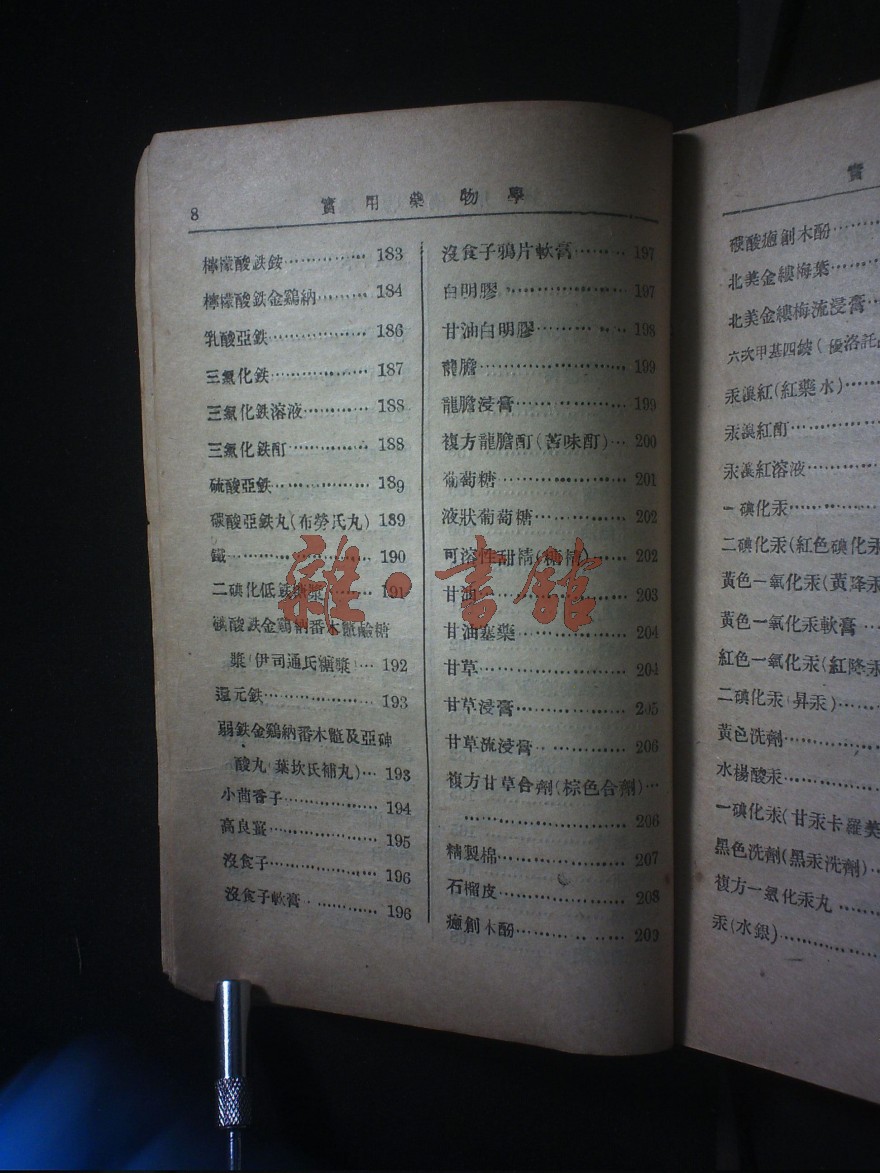 8
實用藥物學
檸檬酸鉄銨 183
檸檬酸鉄金鷄納 184
乳酸亞鉄 186
三氯化鉄 187
三氯化鉄溶液 188
三氯化鉄酊 188
硫酸亞鉄 189
碳酸亞鉄丸(布勞氏丸) 189
鐵 190
二碘化低鉄糖漿 191
燐酸鉄金鷄納番木鼈鹼糖
漿(伊司通氏糖漿) 192
還元鉄 193
弱鉄金鷄納番木鼈及亞砷
酸丸(葉坎氏補丸) 193
小茴香子 194
高良薑 195
沒食子 196
沒食子軟膏 196
沒食子鴉片軟膏 197
白明膠 197
甘油白明膠 198
龍膽 199
龍膽浸膏 199
複方龍膽酊(苦味酊) 200
葡萄糖 201
液狀葡萄糖 202
可溶性甜精(糖精) 202
甘油 203
甘油塞藥 204
甘草 204
甘草浸膏 205
甘草流浸膏 206
複方甘草合劑(棕色合劑)
206
精製棉 207
石榴皮 208
癒創木酚 209
實
碳酸癒創木酚
北美金縷梅葉
北美金縷梅流浸膏
六次甲基四銨(優洛託
汞溴紅(紅藥水)
汞溴紅酊
汞溴紅溶液
一碘化汞
二碘化汞(紅色碘化汞
黃色一氧化汞(黃降汞
黃色一氧化汞軟膏
紅色一氧化汞(紅降汞
二碘化汞(昇汞)
黃色洗劑
水楊酸汞
一碘化汞(甘汞卡羅美
黑色洗劑(黑汞洗劑)
複方一氯化汞丸
汞(水銀)
雜·書館